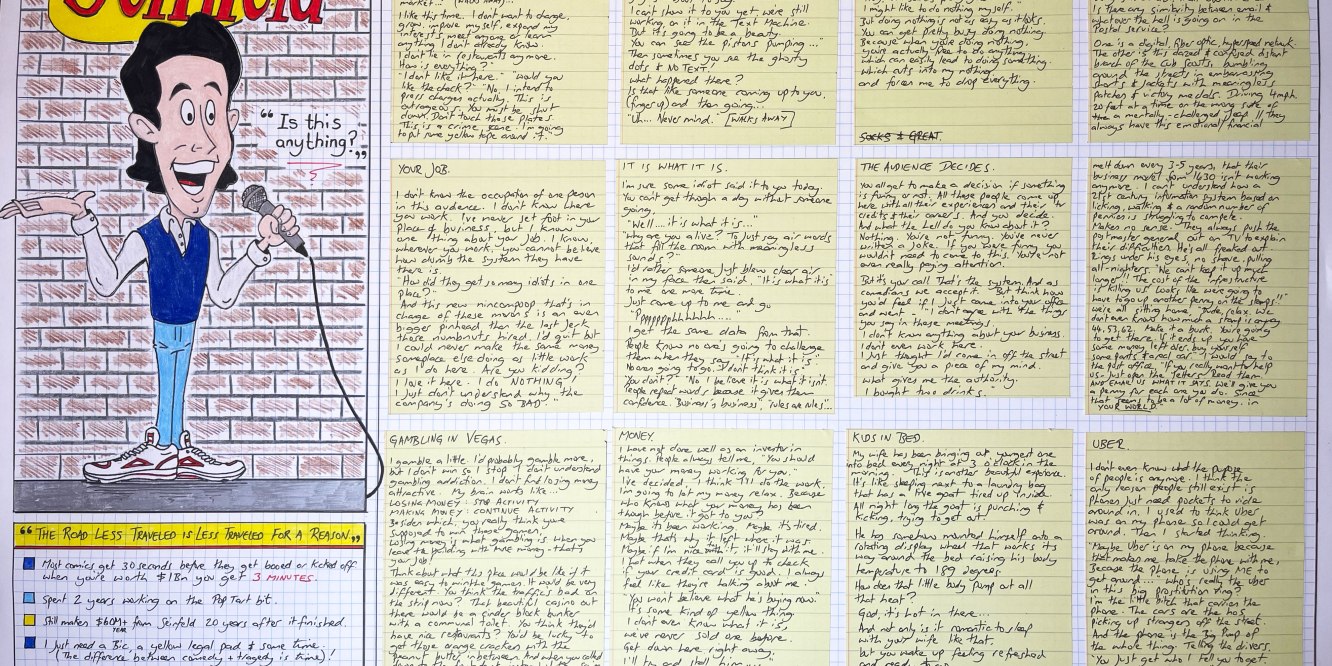 Seinfeld
"Is this
anything?"
"THE ROAD LESS TRAVELED IS LESS TRAVELED FOR A REASON"
Most comics get 30 seconds before they get booed or kicked off
when you're worth $1Bn you get 3 MINUTES.
Spent 2 years working on the Pop Tart bit.
Still makes $60M+ YEAR from Seinfeld 20 years after it finished.
I just need a Bic, a yellow legal pad & some time
(The difference between comedy + tragedy is time)!
I like this time. I don't want to change,
grow, improve myself, expand my
interests, meet anyone or learn
anything I don't already know.
I don't lie in restaurants anymore.
How is everything?
"I don't like it here." "Would you
like the check?" "No, I intend to
press charges actually. This is
outrageous. You must be shut
down. Don't touch those plates.
This is a crime scene. I'm going
to put some yellow tape around it."
I can't show it to you yet, we're still
working on it in the Text Machine.
But it's going to be a beauty.
You can see the pistons pumping..."
Then sometimes you see the ghosty
dots & NO TEXT!
What happened there?
Is that like someone coming up to you,
(finger up) and then going...
"Uh... Never mind." [WALKS AWAY]
I might like to do nothing myself."
But doing nothing is not as easy as it looks.
You can get pretty busy doing nothing.
Because when you're doing nothing,
you're actually free to do anything.
Which can easily lead to doing something.
Which cuts into my nothing
and forces me to drop everything.
SUCKS & GREAT.
Is there any similarity between email &
whatever the hell is going on in the
Postal service?
One is a digital, fiber optic, hyperspeed network.
The other is this dazed & confused, distant
branch of the Cub Scouts, bumbling
around the streets in embarrassing
shorts & jackets with meaningless
patches & victory medals. Driving 4mph
20 feet at a time on the wrong side of
a mentally-challenged Jeep. They
always have this emotional/financial
YOUR JOB.
I don't know the occupation of one person
in this audience. I don't know where
you work. I've never set foot in your
place of business, but I know
one thing about your job. I know,
wherever you work, you cannot believe
how dumb the system they have
there is.
"How did they get so many idiots in one
place?"
And this new nincompoop that's in
charge of these morons is an even
bigger pinhead than the last jerk
those numbnuts hired. I'd quit but
I could never make the same money
someplace else doing as little work
as I do here. Are you kidding?
I love it here. I do NOTHING!
I just don't understand why the
company's doing SO BAD".
IT IS WHAT IT IS.
I'm sure some idiot said it to you today.
You can't get though a day without someone
going,
"Well... it is what it is..."
"Why are you alive? To just say air words
that fill the room with meaningless
sounds?"
I'd rather someone just blew clear air
in my face then said, "It is what it is"
to me one more time.
Just come up to me and go
"Pppppppphhhhhhh...."
I get the same data from that.
People know no one's going to challenge
them when they say "It is what it is"
No one's going to go. "I don't think it is".
You don't?" "No I believe it is what it isn't
People repeat words because it gives them
confidence. Business is business", "rules are rules"...
THE AUDIENCE DECIDES.
You all get to make a decision if something
is funny or not. All these people come up
here with all their experience and their
credits & their careers. And you decide.
And what the hell do you know about it?
Nothing. You're not funny, you've never
written a joke. If you were funny you
wouldn't need to come to this. You're not
even really paying attention.
But it's your call. That's the system. And as
comedians we accept it. But think how
you'd feel if I just came into your office
and went - "I don't agree with the things
you say in these meetings.
I don't know anything about your business.
I don't even work here.
I just thought I'd come in off the street
and give you a piece of my mind.
What gives me the authority.
I bought two drinks".
melt down every 3-5 years, that their
business model from 1630 isn't working
anymore. I can't understand how a
21st century information system based on
licking, walking & a random number of
pennies is struggling to compete.
Makes no sense. They always push the
postmaster general out on TV to explain
their difficulties. He's all freaked out.
Rings under his eyes, no shave, pulling
all-nighters. "We can't keep it up much
longer!! The cost of the infrastructure
is killing us. Looks like we're going to
have to go up another penny on the stamps!!"
We're all sitting home, "Dude, relax. We
don't even know how much a stamp is anyway
44, 53, 62, Make it a buck. You're going
to get there. If it ends up you have
some money left over, buy yourself
some pants & a real car." I would say to
the post office, "If you really want to help
us - Just open the letters. Read them
AND EMAIL US WHAT IT SAYS. We'll give you
a penny for each one you do. Since
that seems to be a lot of money. in
YOUR WORLD.
GAMBLING IN VEGAS.
I gamble a little. I'd probably gamble more,
but I don't win so I stop. I don't understand
gambling addiction. I don't find losing money
attractive. My brain works like..."
LOSING MONEY: STOP ACTIVITY
MAKING MONEY: CONTINUE ACTIVITY
Besides which, you really think you're
supposed to win those games?
Losing money is what gambling is when you
lead the pudding with more money - that's
your job!
Think about what this place would be like if it
was easy to win the games. It would be very
different. You think the traffic's bad on
the strip now? That beautiful casino out
there would be a cinder block bunker
with a communal toilet. You think they'd
have nice restaurants? You'd be lucky to
get those orange crackers with the
peanut butter in between. And when you called
MONEY.
I have not done well as an investor in
things. People always tell me, "You should
have your money working for you."
I've decided, I think I'll do the work.
I'm going to let my money relax. Because
who knows what your money has been
though before it got to you?
Maybe it's been working. Maybe it's tired.
Maybe that's why it left where it was.
Maybe if I'm nice with it, it'll stay with me.
that when they call you up to check
if your credit card is good. I always
feel like they're talking about me.
"You won't believe what he's buying now."
"It's some kind of yellow thing
I don't even know what it is,
we've never sold one before.
Get down here right away.
I'll try and stall him..."
KIDS IN BED.
My wife has been bringing our youngest one
into bed every night at 3 o'clock in the
morning. This is another beautiful experience.
It's like sleeping next to a laundry bag
that has a live goat tied up inside.
All night long the goat is punching &
kicking, trying to get out.
He has somehow mounted himself onto a
rotating display wheel that works its
way around the bed raising his body
temperature to 189 degrees.
How does that little body pump out all
that heat?
God, it's hot in there...
And not only is it romantic to sleep
with your wife like that.
but you wake up feeling refreshed
and ready to
UBER.
I don't even know what the purpose
of people is anymore. I think the
only reason people still exist is
phones just need pockets to ride
around in. I used to think Uber
was on my phone so I could get
around. Then I started thinking.
"Maybe Uber is on my phone because
that makes me take the phone with me,
Because the phone is using ME to
get around.... Who's really the Uber
in this big prostitution ring?
I'm the little bitch that carries the
phone. The cars are the hos,
picking up strangers off the street.
And the phone is the Big Pimp of
the whole thing. Telling us
"You just get who I tell you to get.